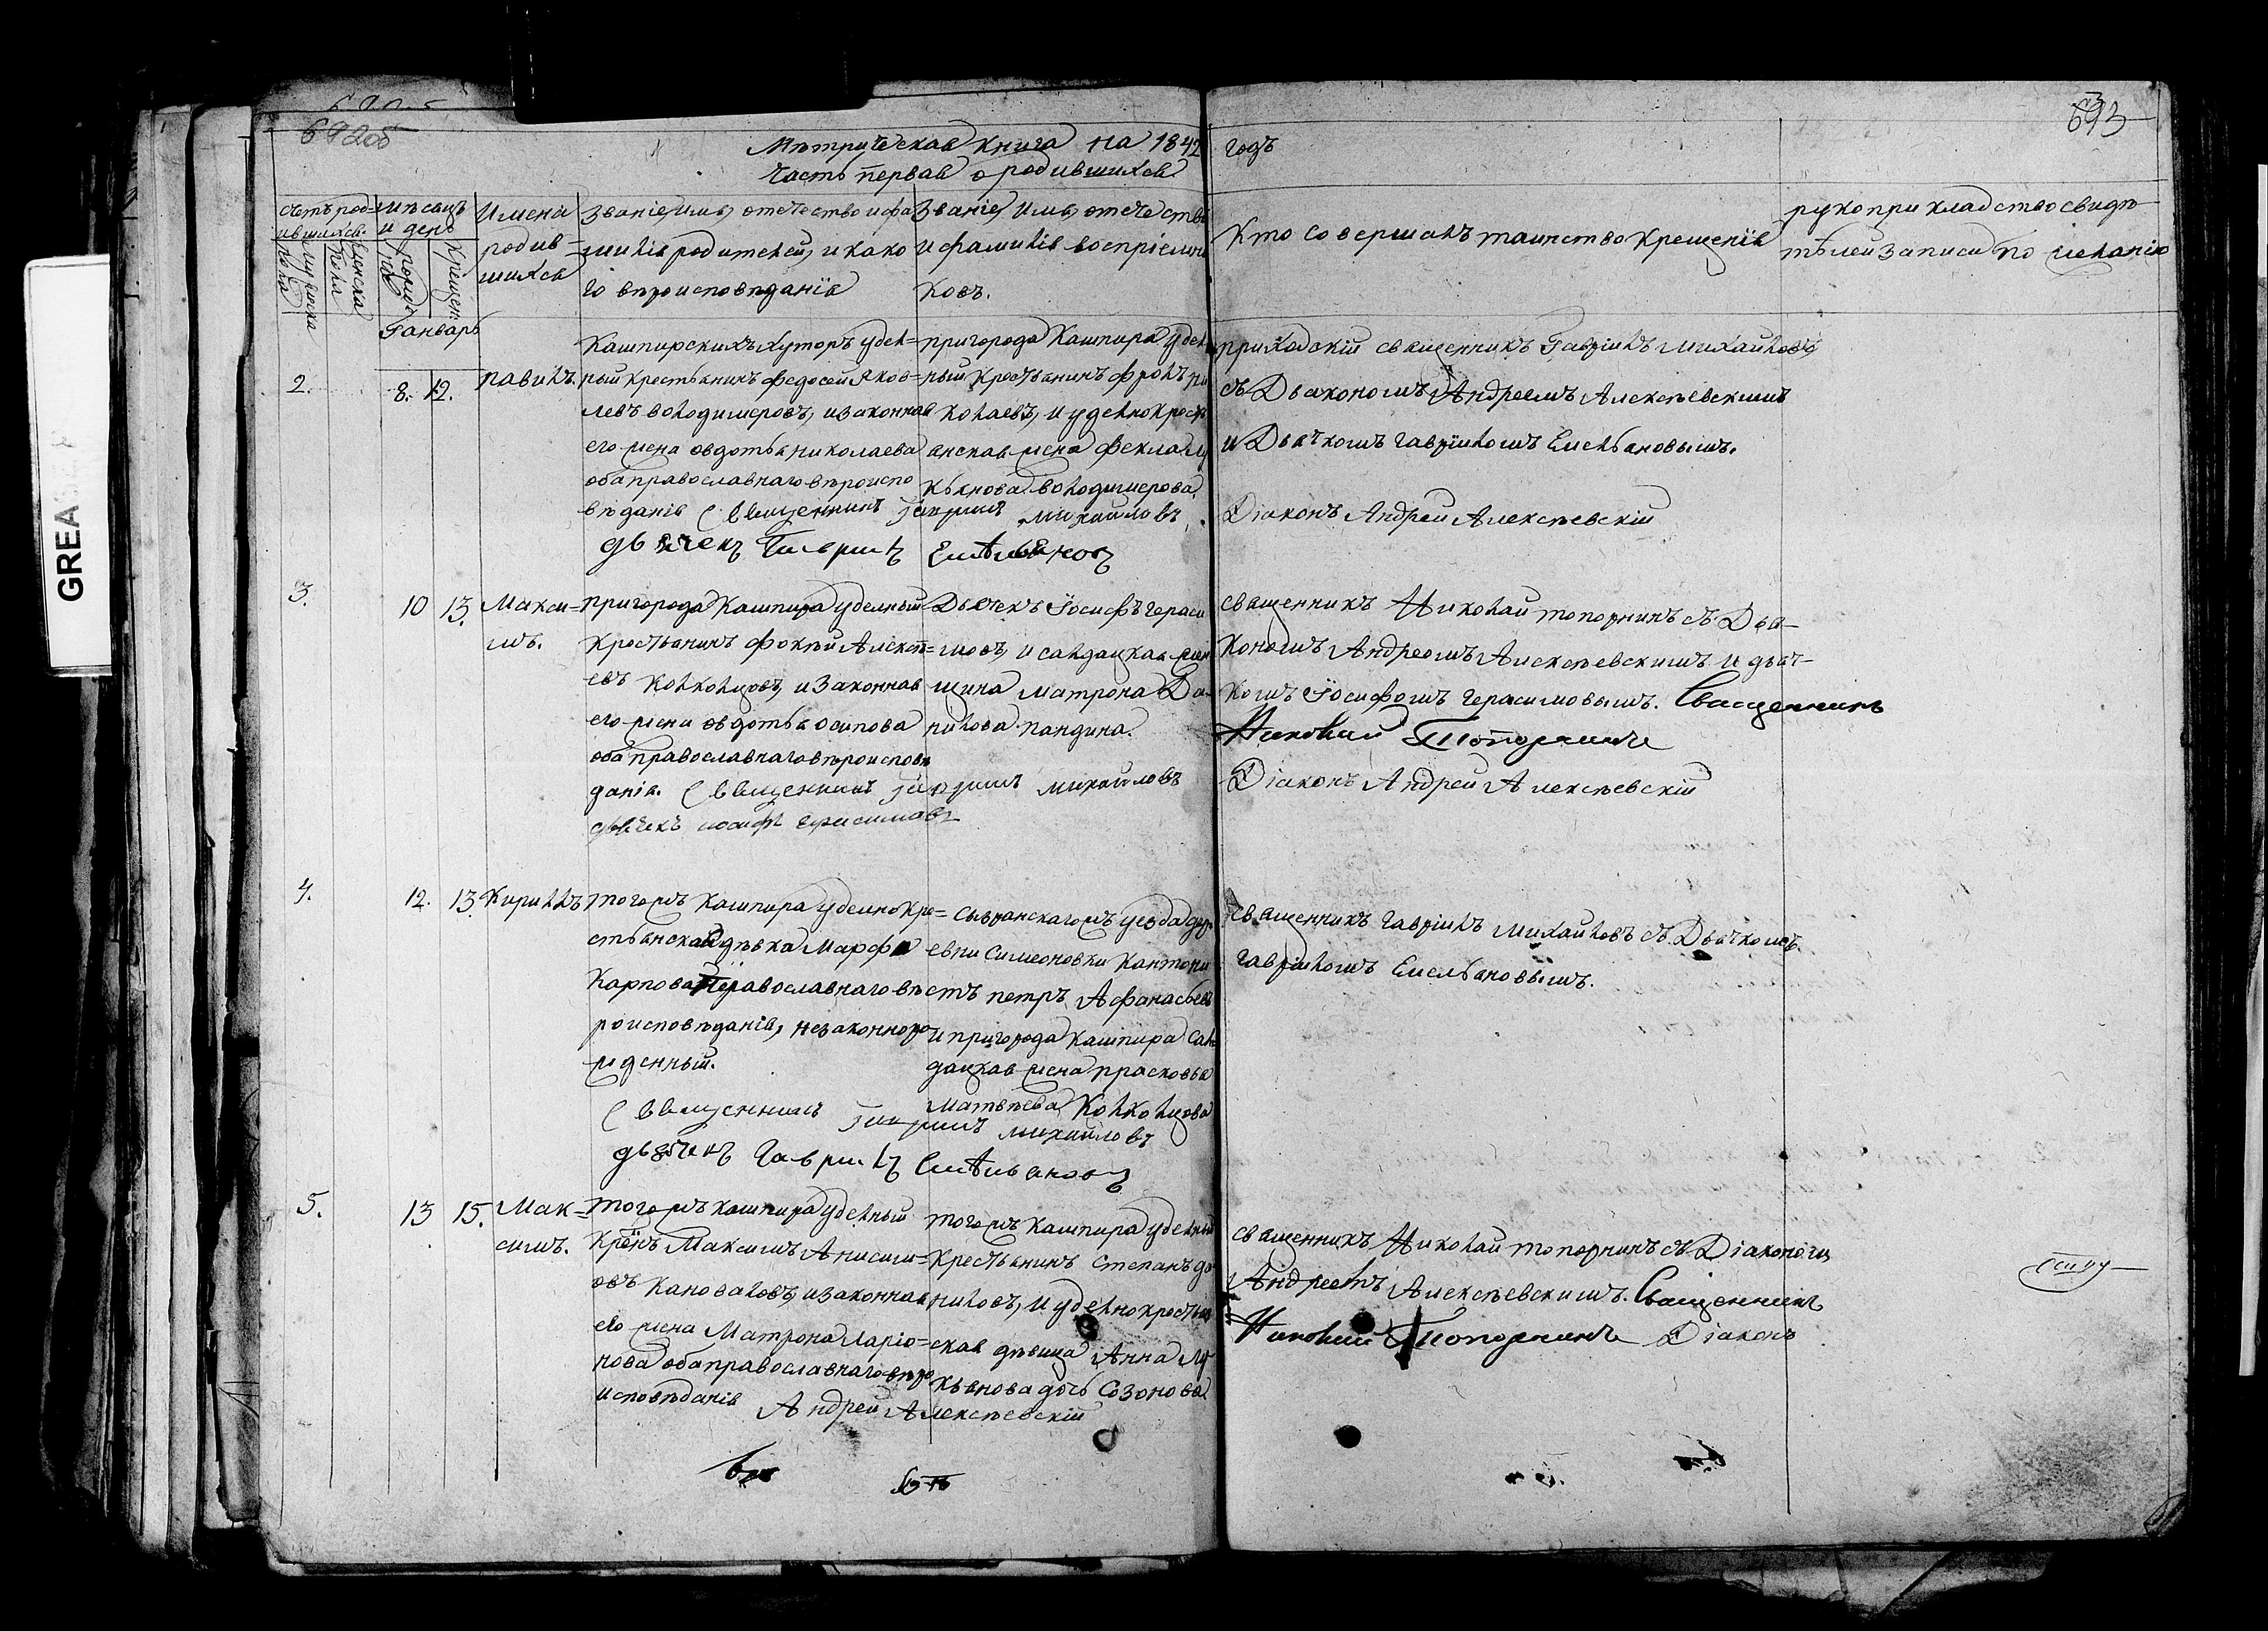 692об
693
Метрическая книга на 1842 годъ
Часть первая о родившихся
Счетъ род=
ившихся.
Мужеска
пола
Женска
пола
Мѣсяцъ
и день
рожд.
крещен.
Имена
родив=
шихся
Званіе, имя, отечество и фа
миліи родителей, и како
го вѣроисповѣданія
Званіе, имя, отечество
и фамилія воспріемни
ковъ.
Кто совершалъ таинство крещенія
рукоприкладство свидѣ
тѣлей записи по желанію
Генварь
2.
8. 12.
павилъ.
Кашпирскихъ хуторъ удел=
ный крестьянинъ федосей Яков=
левъ володимеровъ, изаконная
его жена овдотья николаева
оба православнаго вѣроиспо
вѣданія Священникъ Гавріилъ Михайловъ
дьячекъ Гаврилъ Емельяновъ
пригорода Кашпира удел
ный крестьянинъ фролъ ни
колаевъ, и уделнокресть
янская жена фекла лу
кьянова володимерова
приходскій священникъ Гавріилъ Михайловъ
съ Дьякономъ Андреемъ Алексѣевскимъ
и Дьячкомъ Гавріиломъ Емельяновымъ.
Діаконъ Андрей Алексѣевскій
3.
10 13.
Макси=
мъ.
пригорода Кашпира уделный
крестьянинъ фокѣй Алексѣ=
евъ колколцовъ, изаконная
его жена овдотья осипова
оба православнаго вѣроисповѣ
данія. Священникъ Гавріилъ Михайловъ
дьячекъ иосифъ Герасимовъ
Дьячекъ Іосифъ Гераси
мовъ, и салдацкая жен
щина матрона Да
нилова пандина.
священникъ Николай топорнинъ съ Дья
кономъ Андреемъ Алексѣевскимъ и дьяч
комъ Іосифомъ Герасимовымъ. Священникъ
Николай Топорнинъ
Діаконъ Андрей Алексѣевскій
4.
12. 13.
Кириллъ
тогожъ Кашпира уделнокре=
стьянская дѣвка Марфа
Карпова Православнаго вѣ
роисповѣданія, незаконноро
жденный.
Священникъ Гавріилъ Михайловъ
дьячекъ Гаврилъ Емельяновъ
сызранскагожъ уезда дер
евни Симеоновки Кантони
стъ петръ Афанасьевъ
и пригорода Кашпира Сал
дацкая жена прасковья
Матвѣева Колколцова
священникъ Гавріилъ Михайловъ съ Дьячкомъ
Гавріиломъ Емельяновымъ.
5.
13 15.
Мак=
симъ.
тогожъ кашпира уделный
крѣнъ Максимъ Анисим=
овъ Коноваловъ, изаконная
его жена Матрона Ларіо=
нова оба православнаго вѣро
исповѣданія Андрей Алексѣевскій
тогожъ кашпира уделный
крестьянинъ Степанъ да
ниловъ, и уделнокрестьян
ская дѣвица Анна лу
кьянова дочь Созонова
священникъ Николай топорнинъ съ Діакономъ
Андреемъ Алексѣевскимъ. Священникъ
Николай Топорнинъ Діаконъ
GREA